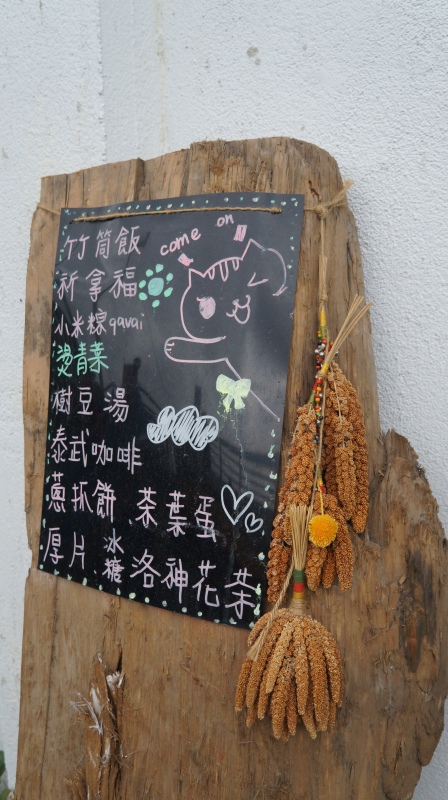 come on
竹筒飯
祈拿福
小米粽qavai
燙青菜
樹豆湯
泰武咖啡
蔥抓餅 茶葉蛋
厚片 冰糖洛神花茶